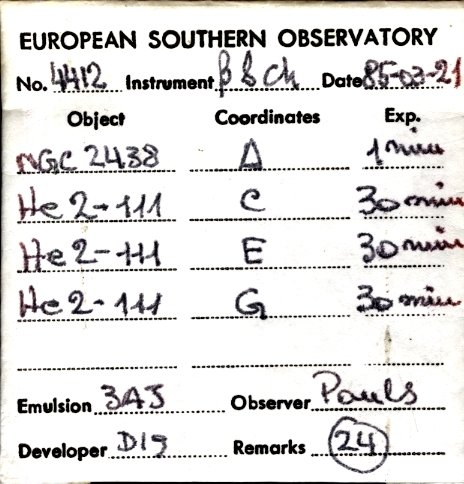 EUROPEAN SOUTHERN OBSERVATORY
No. 4412 Instrument B&Ch Date 85-03-21
Object Coordinates Exp.
NGC 2438 A 1 min
He 2-111 C 30 min
He 2-111 E 30 min
He 2-111 G 30 min
Emulsion 3AJ Observer Pauls
Developer D19 Remarks 24